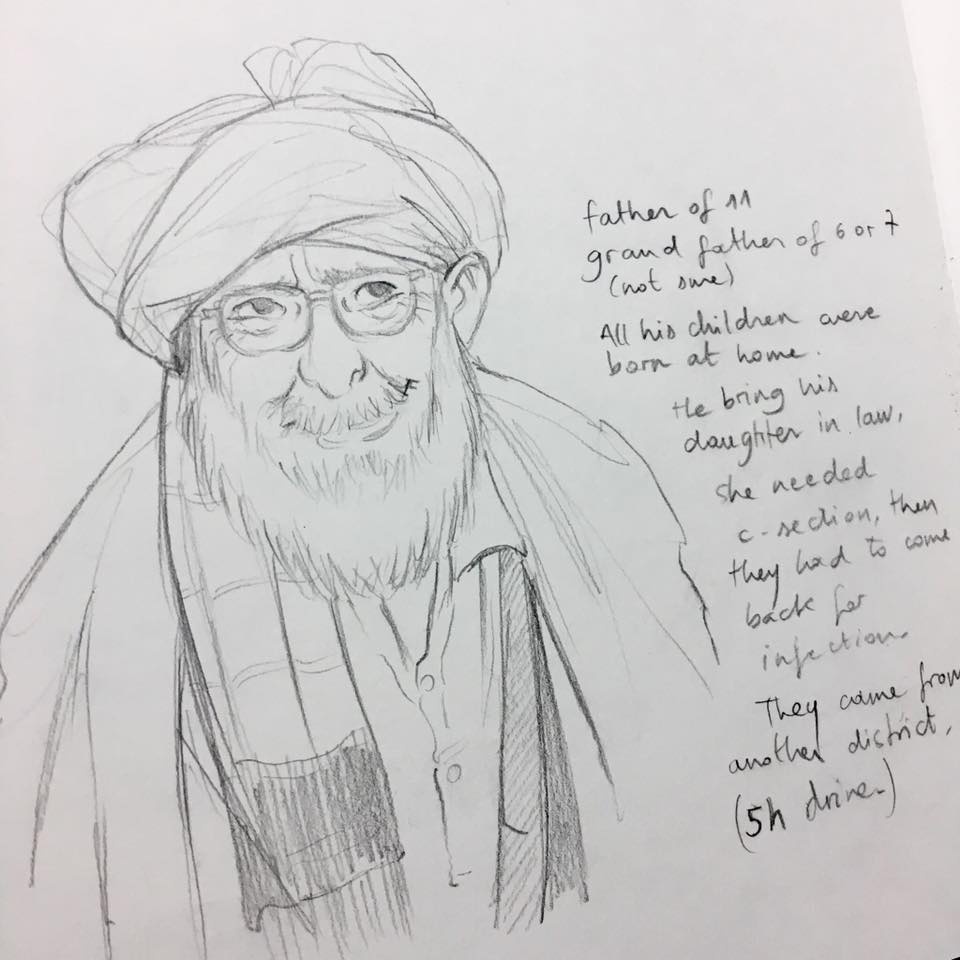 father of 11
grand father of 6 or 7
(not sure)
All his children were
born at home.
He bring his
daughter in law,
she needed
c-section, then
they had to come
back for
infection.
They came from
another district,
(5h drive.)